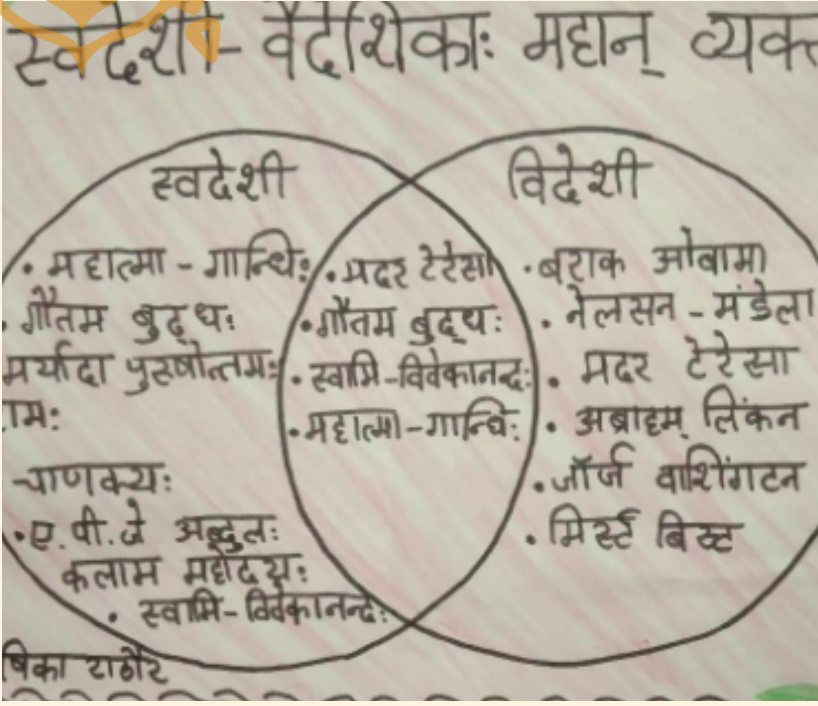 स्वदेशी - वैदेशिकाः महान् व्यक्त
स्वदेशी
• महात्मा - गान्धिः
• गौतम बुद्धः
मर्यादा पुरुषोत्तमः
ामः
चाणक्यः
• ए.पी.जे अब्दुलः
कलाम महोदयः
• स्वामि-विवेकानन्दः
• मदर टेरेसा
• गौतम बुद्धः
• स्वामि-विवेकानन्दः
• महात्मा-गान्धिः
विदेशी
• बराक ओबामा
• नेलसन - मंडेला
• मदर टेरेसा
• अब्राहम् लिंकन
• जॉर्ज वाशिंगटन
• मिर्स्ट
षिका राठौर